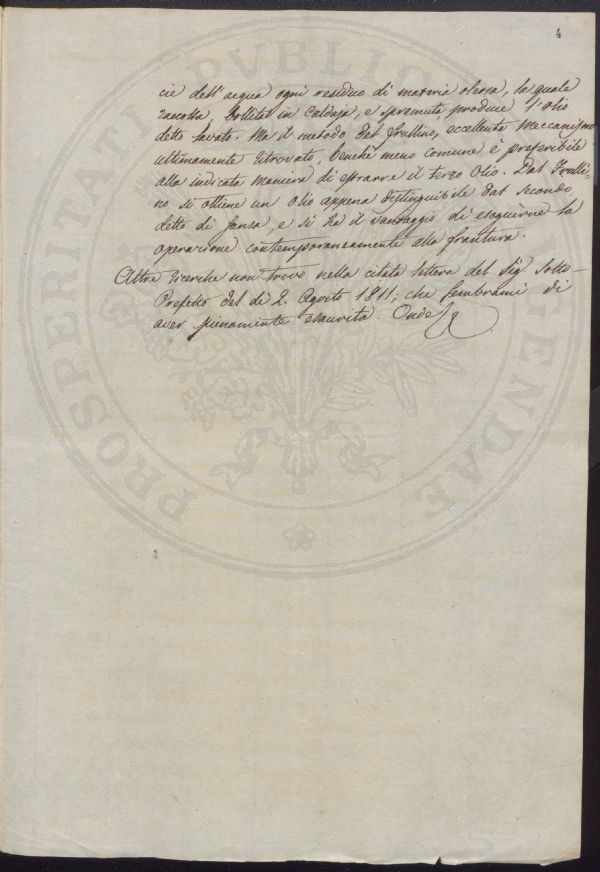 4
cie dell' acqua ogni residuo di materia oleosa, la quale
raccolta, bollita in Caldaja, e spremuta, produce l'olio
detto lavato. Ma il metodo del frullino, eccellente Meccanismo
ultimamente ritrovato, benchè meno comune è preferibile
alla indicata maniera di estrarre il terzo Olio. Dal Frulli-
no si ottiene un Olio appena distinguibile dal secondo
detto di sansa, e si ha il vantaggio di eseguirne la
operazione contemporaneamente alla frantura.
Altre ricerche non trovo nella citata lettera del Sig. Sotto-
Prefetto del dì 2. Agosto 1811; che sembrami di
aver pienamente esaurita. Onde
PROSPERITATI PVBLICAE AVGENDAE